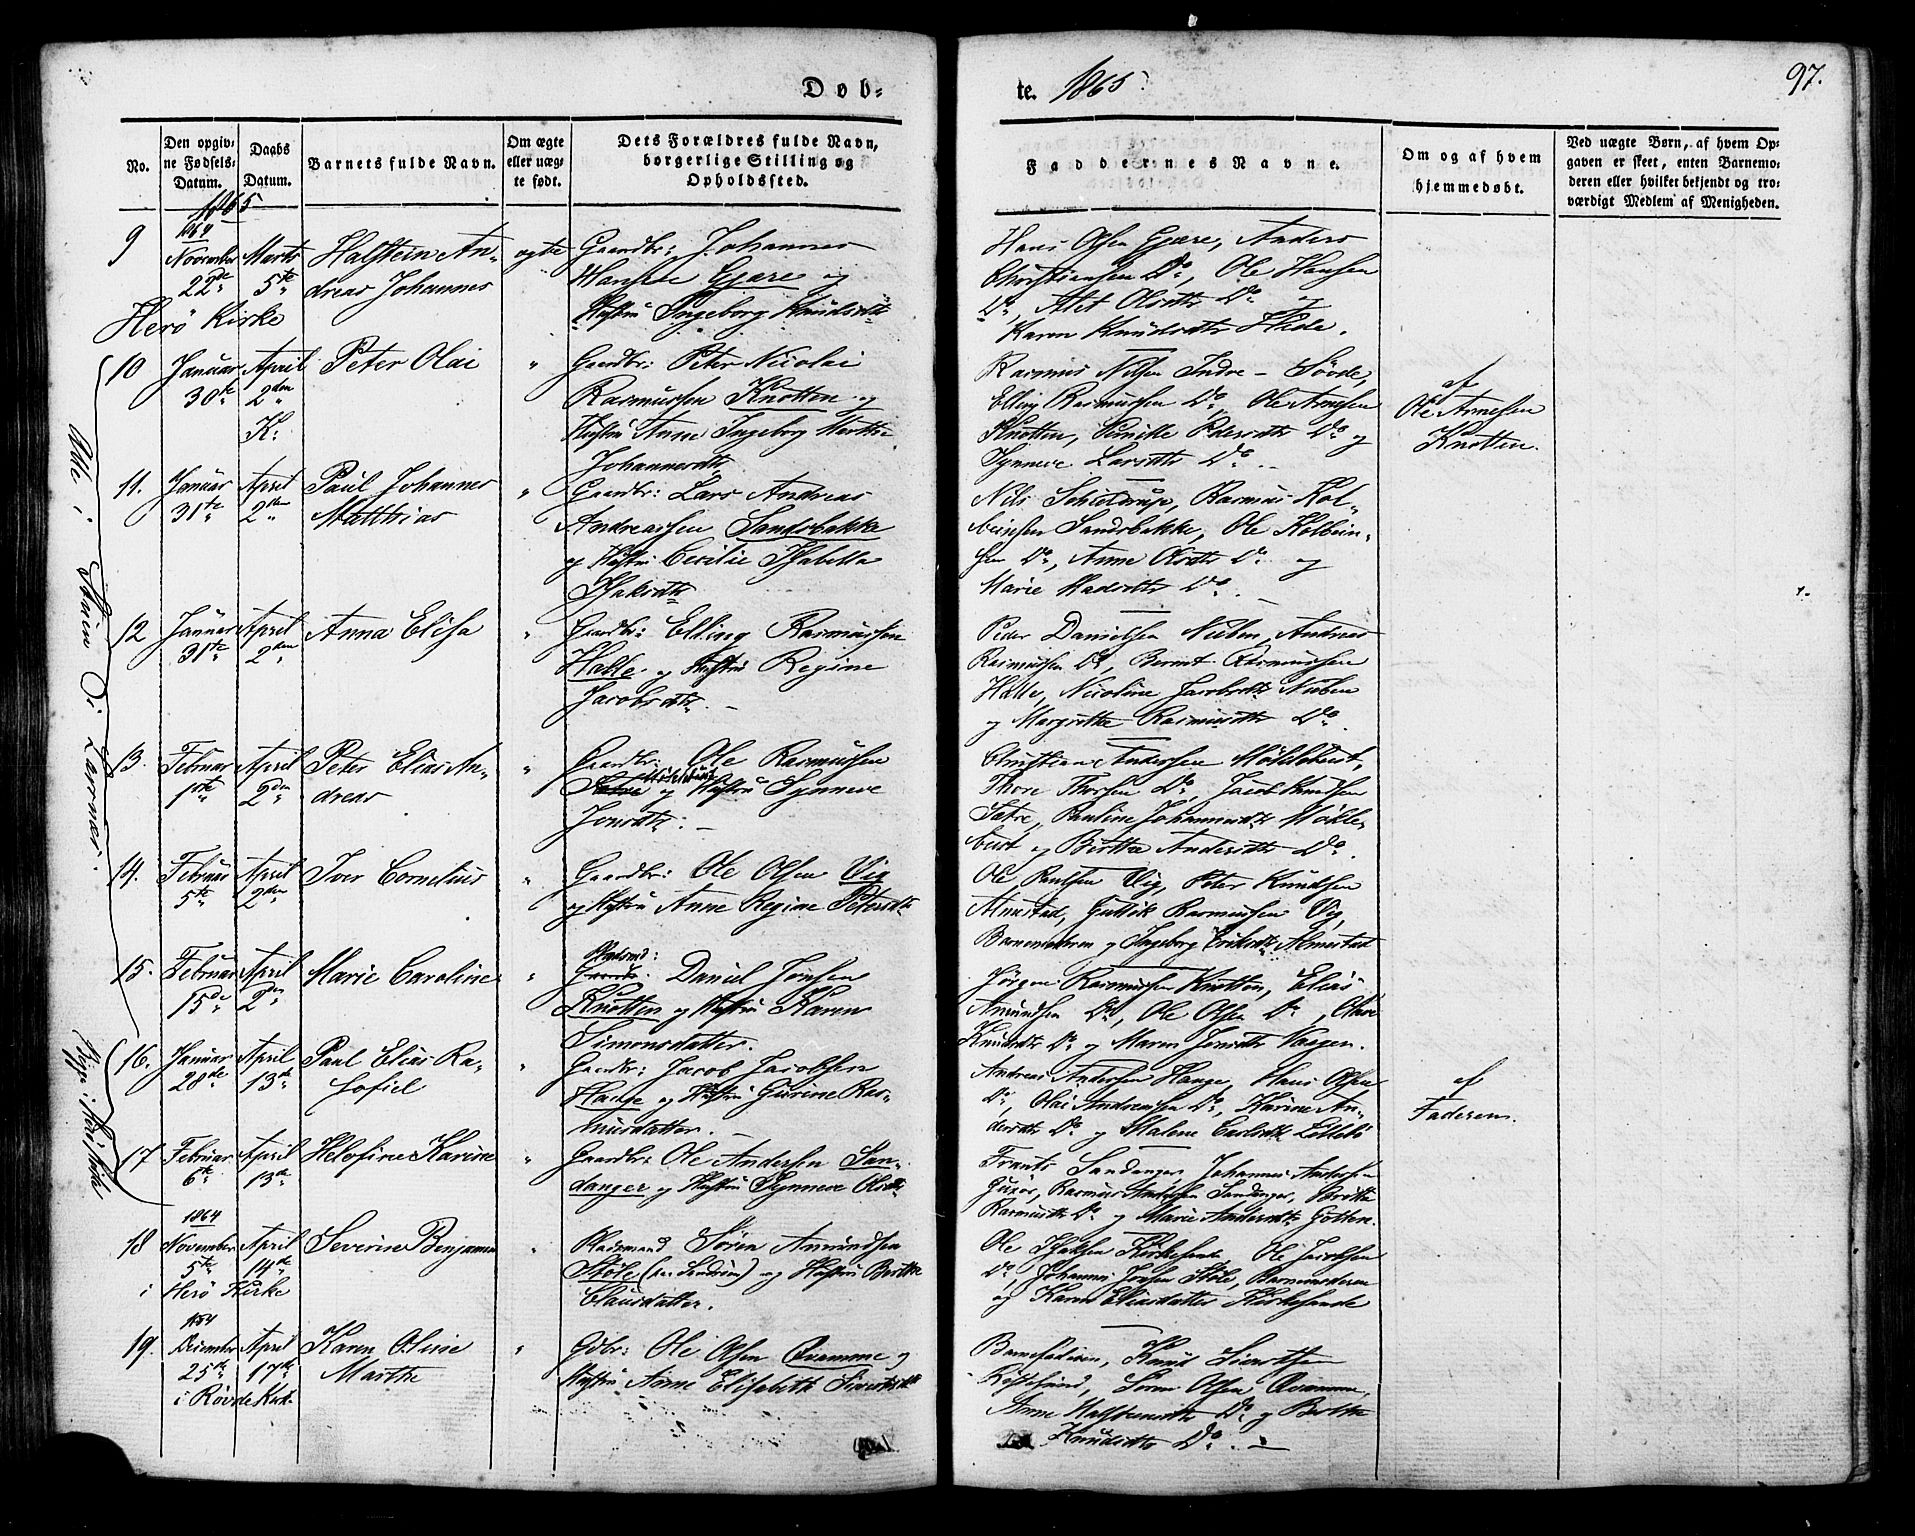 Døb-
te. 1865.
97.
No.
Den opgiv-
ne Fødsels-
Datum.
Daabs
Datum.
Barnets fulde Navn.
Om ægte
eller uæg-
te født.
Dets Forældres fulde Navn,
borgerlige Stilling og
Opholdssted.
Faddernes Navne.
Om og af hvem
hjemmedøbt.
Ved uægte Børn, af hvem Op-
gaven er skeet, enten Barnemo-
deren eller hvilket bekjendt og tro-
værdigt Medlem af Menigheden.
1865
9
1864
November
22de
Marts
5te
Halstein An-
dreas Johannes
ægte
Gaardbr: Johannes
Hansen Gjære og
Hustru Ingeborg Knudsdtr
Hans Olsen Gjære, Anders
Christiansen Do, Ole Hansen
Do, Alet Olsdtr Do og
Karen Knudsdtr Hide.
Herø Kirke
10
Januar
30te
April
2den
K:
Peter Olai
"
Gaardbr: Peter Nicolai
Rasmussen Knotten og
Hustru Anne Ingeborg Marthe
Johannesdtr
Rasmus Nilsen Indre-Søvde,
Elling Rasmussen Do, Ole Arnesen
Knotten, Pernille Pedersdtr Do og
Synneve Larsdtr Do.
af
Ole Arnesen
Knotten.
11.
Januar
31te
April
2den
Paul Johannes
Matthias
"
Gaardbr: Lars Andreas
Andreassen Sandsbakke
og Hustru Cecilie Isabella
Isaksdtr
Nils Schieldrup, Rasmus Kol-
beinsen Sandsbakke, Ole Kolbein-
sen Do, Anne Olsdtr Do og
Marie Madsdtr Do.
12
Januar
31te
April
2den
Anna Elisa
"
Gaardbr: Elling Rasmussen
Halle og Hustru Regine
Jacobsdtr.
Peder Danielsen Nieben, Andreas
Rasmussen Do, Bernt Rasmussen
Halle, Nicoline Jacobsdtr Nieben
og Margrethe Rasmusdtr Do.
13.
Februar
1ste
April
2den
Peter Elias An-
dreas
"
Gaardbr: Ole Rasmussen
Møklebust
Sætre og Hustru Synneve
Jonsdtr.
Christian Andersen Møklebust,
Thore Thorsen Do, Jacob Knudsen
Sætre, Pauline Johannesdtr Møkle-
bust og Berthe Andersdtr Do.
14.
Februar
5te
April
2den
Iver Cornelius
"
Gaardbr: Ole Olsen Vig
og Hustru Anne Regine Petersdtr
Ole Paulsen Vig, Peter Knudsen
Almestad, Guttik Rasmussen Vig,
Barnemoderen og Ingeborg Eriksdtr Almestad
15.
Februar
15de
April
2den
Marie Caroline
"
Pladsmd:
Gaardbr: Daniel Jonsen
Knotten og Hustru Karen
Simonsdatter.
Jørgen Rasmussen Knotten, Elias
Amundsen Do, Ole Olsen Do, Olave
Knudsdtr Do og Maren Jonsdtr Vaagen.
Alle i Slaien O: Larsnæs.
16.
Januar
28de
April
13de
Paul Elias Ra-
sofiel
"
Gaardbr: Jacob Jacobsen
Hauge og Hustru Gurine Ras-
musdatter.
Andreas Andersen Hauge, Hans Olsen
Do, Olai Andreassen Do, Karine An-
dersdtr Do og Malene Carlsdtr Littlebø
af
Faderen.
17
Februar
6te
April
13de
Helefine Karine
"
Gaardbr: Ole Andersen San-
danger og Hustru Synneve Olsdtr
Frants Sandanger, Johannes Andersen
Gursø, Rasmus Andersen Sandanger, Berthe
Rasmusdtr Do og Marie Andersdtr Gotten.
18
1864
November
5te
April
14de
Severine Benjamine
"
Pladsmand Søren Amundsen
Støle og Hustru Berthe
Clausdatter.
Ole Isaksen Kirkesande, Ole Jacobsen
Do, Johannes Jonsen Støle, Barnemoderen
og Karen Eliasdatter Kirkesande
i Herø Kirke
19.
1864
December
25de
April
17de
Karen Oline
Marthe
"
Gdbr: Ole Olsen Qvamme og
Hustru Anne Elisabeth Sivertsdtr
Barnefaderen, Knud Sivertsen
Koparsund, Søren Olsen Qvamme,
Anne Halsteinsdtr Do og Berthe
Knudsdtr Do.
i Røvde Kirk.